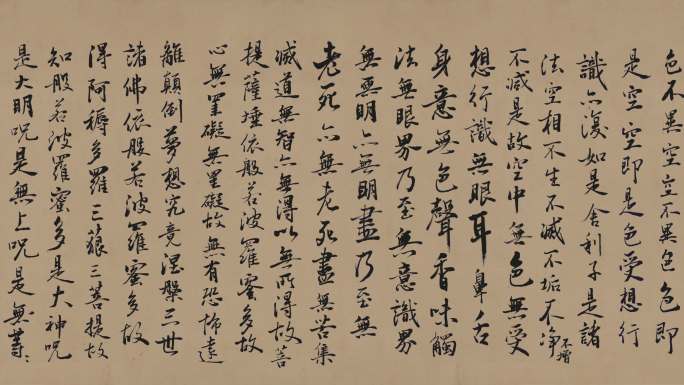 色不異空空不異色色即
是空空即是色受想行
識亦復如是舍利子是諸
法空相不生不滅不垢不净不增
不減是故空中無色無受
想行識無眼耳鼻舌
身意無色聲香味觸
法無眼界乃至無意識界
無無明亦無明盡乃至無
老死亦無老死盡無苦集
滅道無智亦無得以無所得故菩
提薩埵依般若波羅蜜多故
心無罣礙無罣礙故無有恐怖遠
離顛倒夢想究竟涅槃三世
諸佛依般若波羅蜜多故
得阿耨多羅三藐三菩提故
知般若波羅蜜多是大神呪
是大明呪是無上呪是無等〻